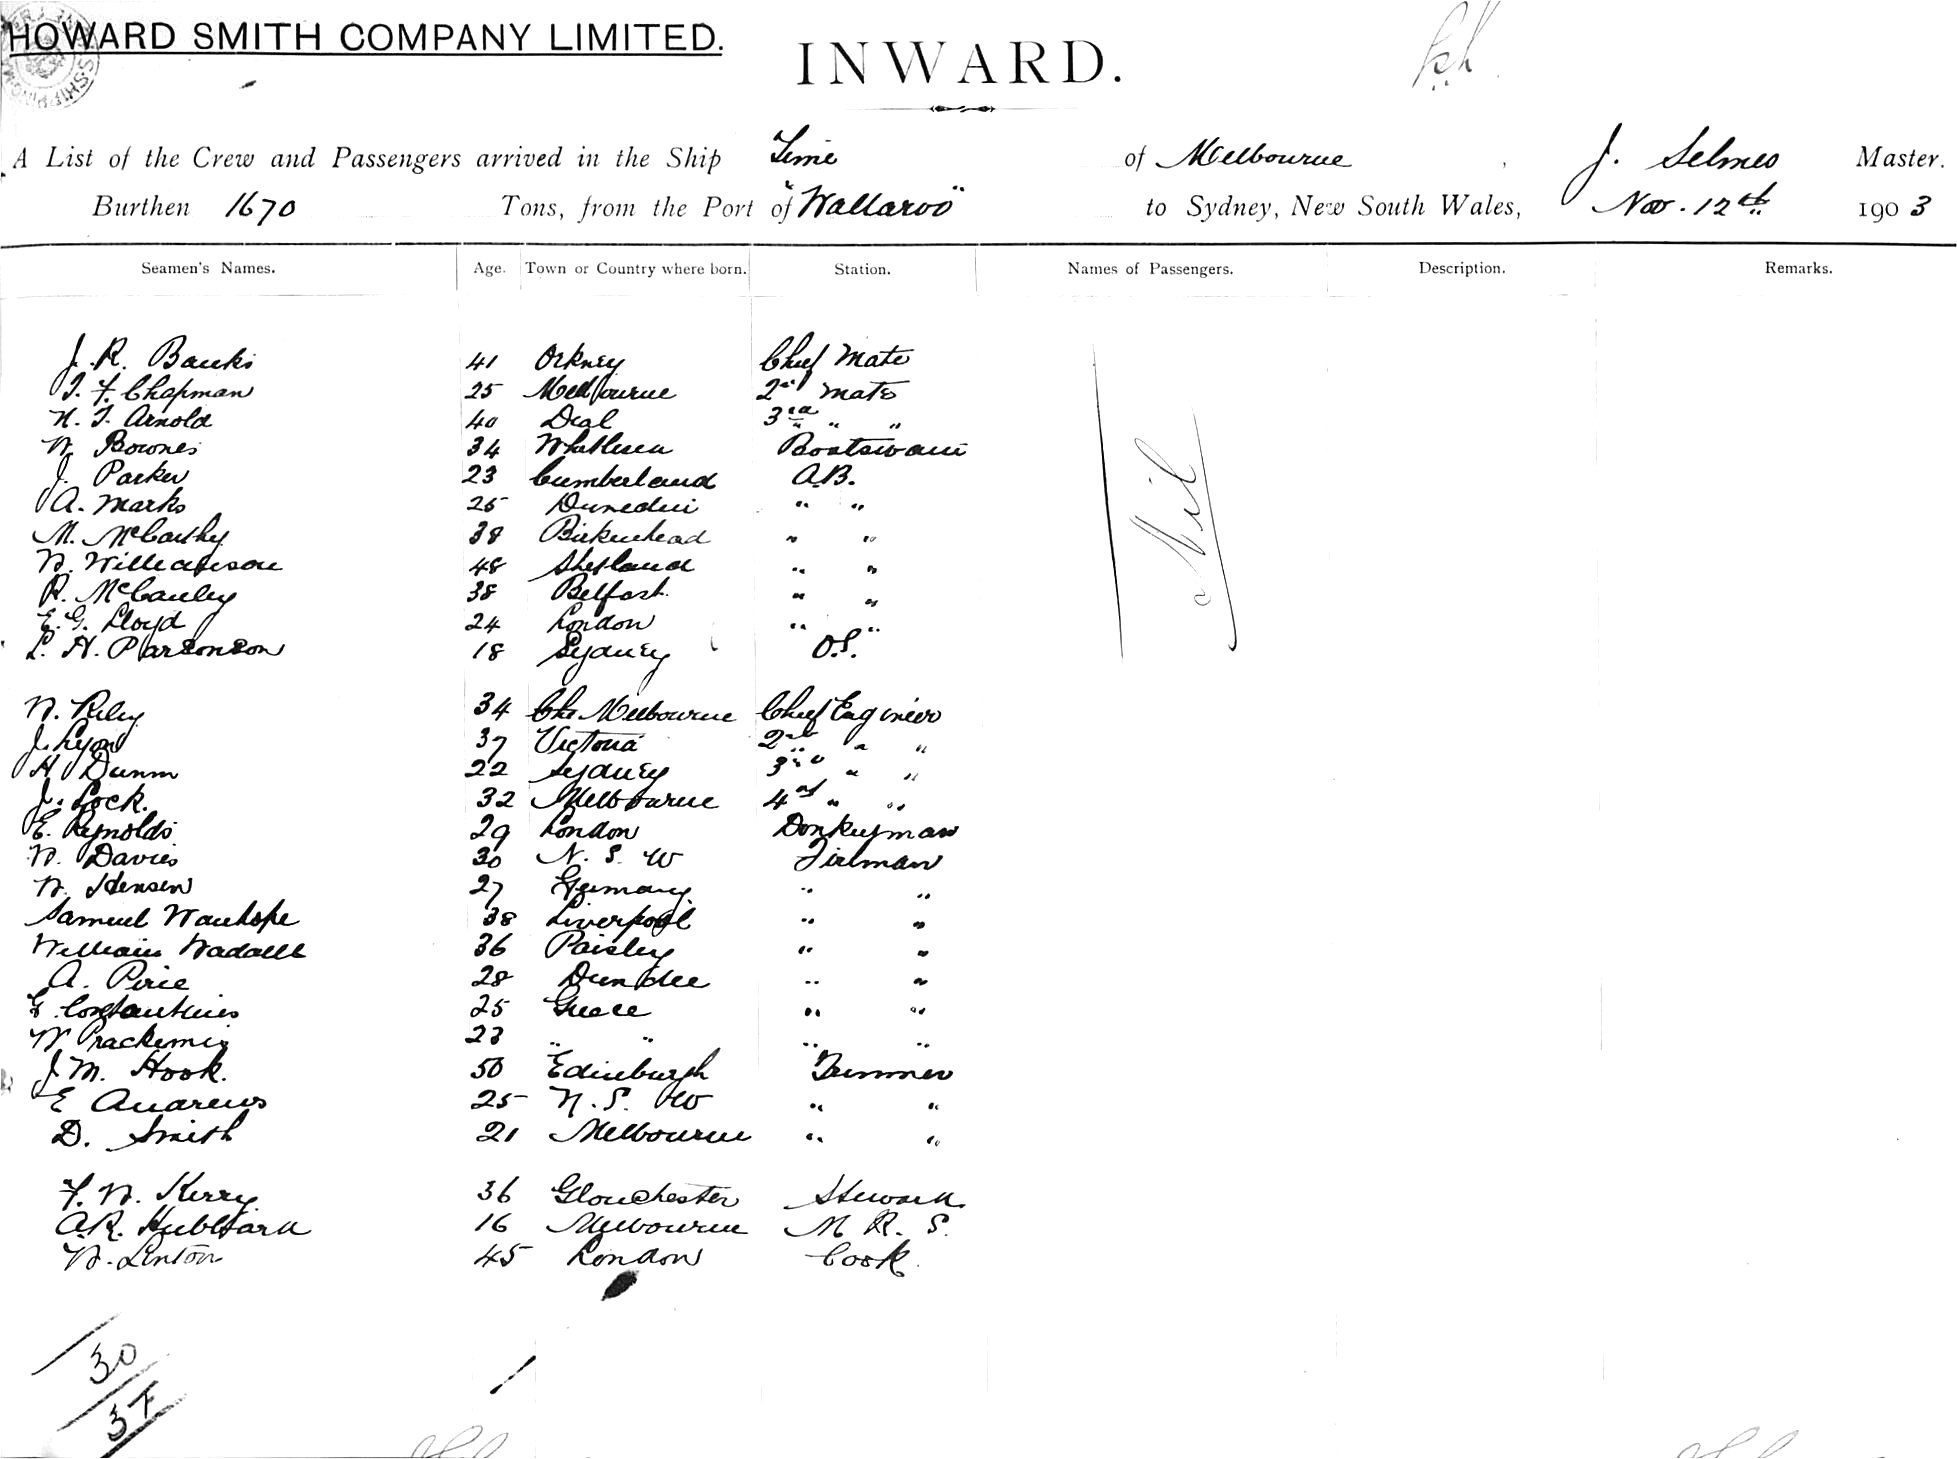 HOWARD SMITH COMPANY LIMITED.
INWARD.
A List of the Crew and Passengers arrived in the Ship Time of Melbourne, J. Selmes Master.
Burthen 1670 Tons, from the Port of "Wallaroo" to Sydney, New South Wales, Nov. 12th 1903
Seamen's Names. Age. Town or Country where born. Station. Names of Passengers. Description. Remarks.
J. R. Banks 41 Orkney Chief Mate
T. F. Chapman 25 Melbourne 2nd Mate
H. T. Arnold 40 Deal 3rd " "
W. Bownes 34 Boatswain
J. Parker 23 Cumberland A.B.
A. Marks 25 Dunedin " "
M. McCarthy 38 Birkenhead " "
W. Williamson 48 Shetland " "
R. McCauley 38 Belfast " "
E. G. Lloyd 24 London " "
L. H. Parsonson 18 Sydney O.S.
Nil
W. Riley 34 Melbourne Chief Engineer
J. Lyon 37 Victoria 2nd " "
H. Dunn 22 Sydney 3rd " "
J. Lock. 32 Melbourne 4th " "
E. Reynolds 29 London Donkeyman
W. Davies 30 N. S. W Fireman
W. Hensen 27 Germany " "
Samuel Wauhope 38 Liverpool " "
William Waddell 36 Paisley " "
A. Pirie 28 Dundee " "
G. Constantinis 25 Greece " "
W 23 " " " "
J. M. Hook. 50 Edinburgh Trimmer
E Andrews 25 N. S. W " "
D. Smith 21 Melbourne " "
F. W. Kerry 36 Glouchester Steward
A. R. Hubbard 16 Melbourne M R. S.
W. Linton 45 London Cook.
30
37